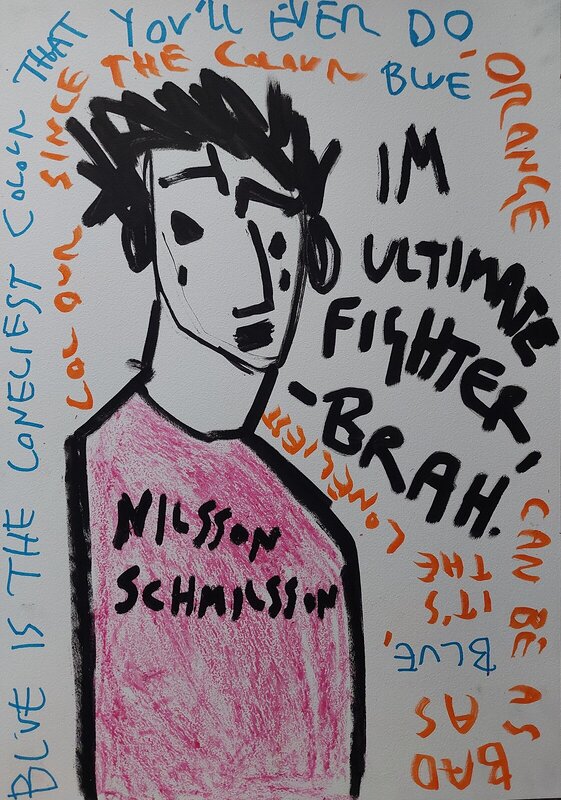 BLUE IS THE LONELIEST COLOUR THAT YOU'LL EVER DO,
ORANGE CAN BE AS
BAD AS
BLUE,
IT'S
THE
LONELIEST
COLOUR SINCE THE COLOUR BLUE
IM
ULTIMATE
FIGHTER,
-BRAH.
NILSSON
SCHMILSSON